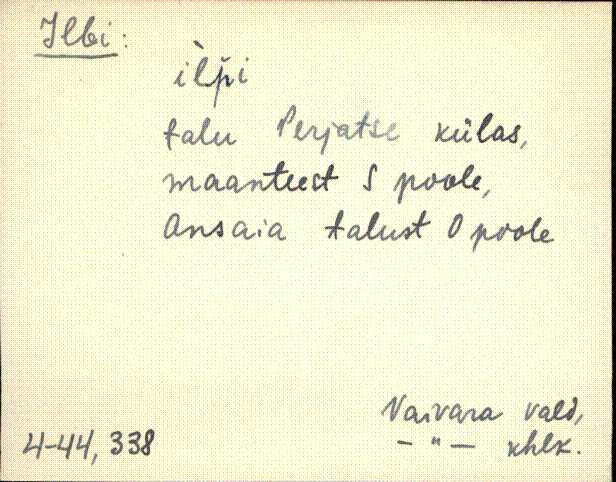 Ilbi:
ìlp̆i
talu Perjatse külas,
maanteest S poole,
Ansaia talust O poole
Vaivara vald,
4-44, 338 — " — khlk.